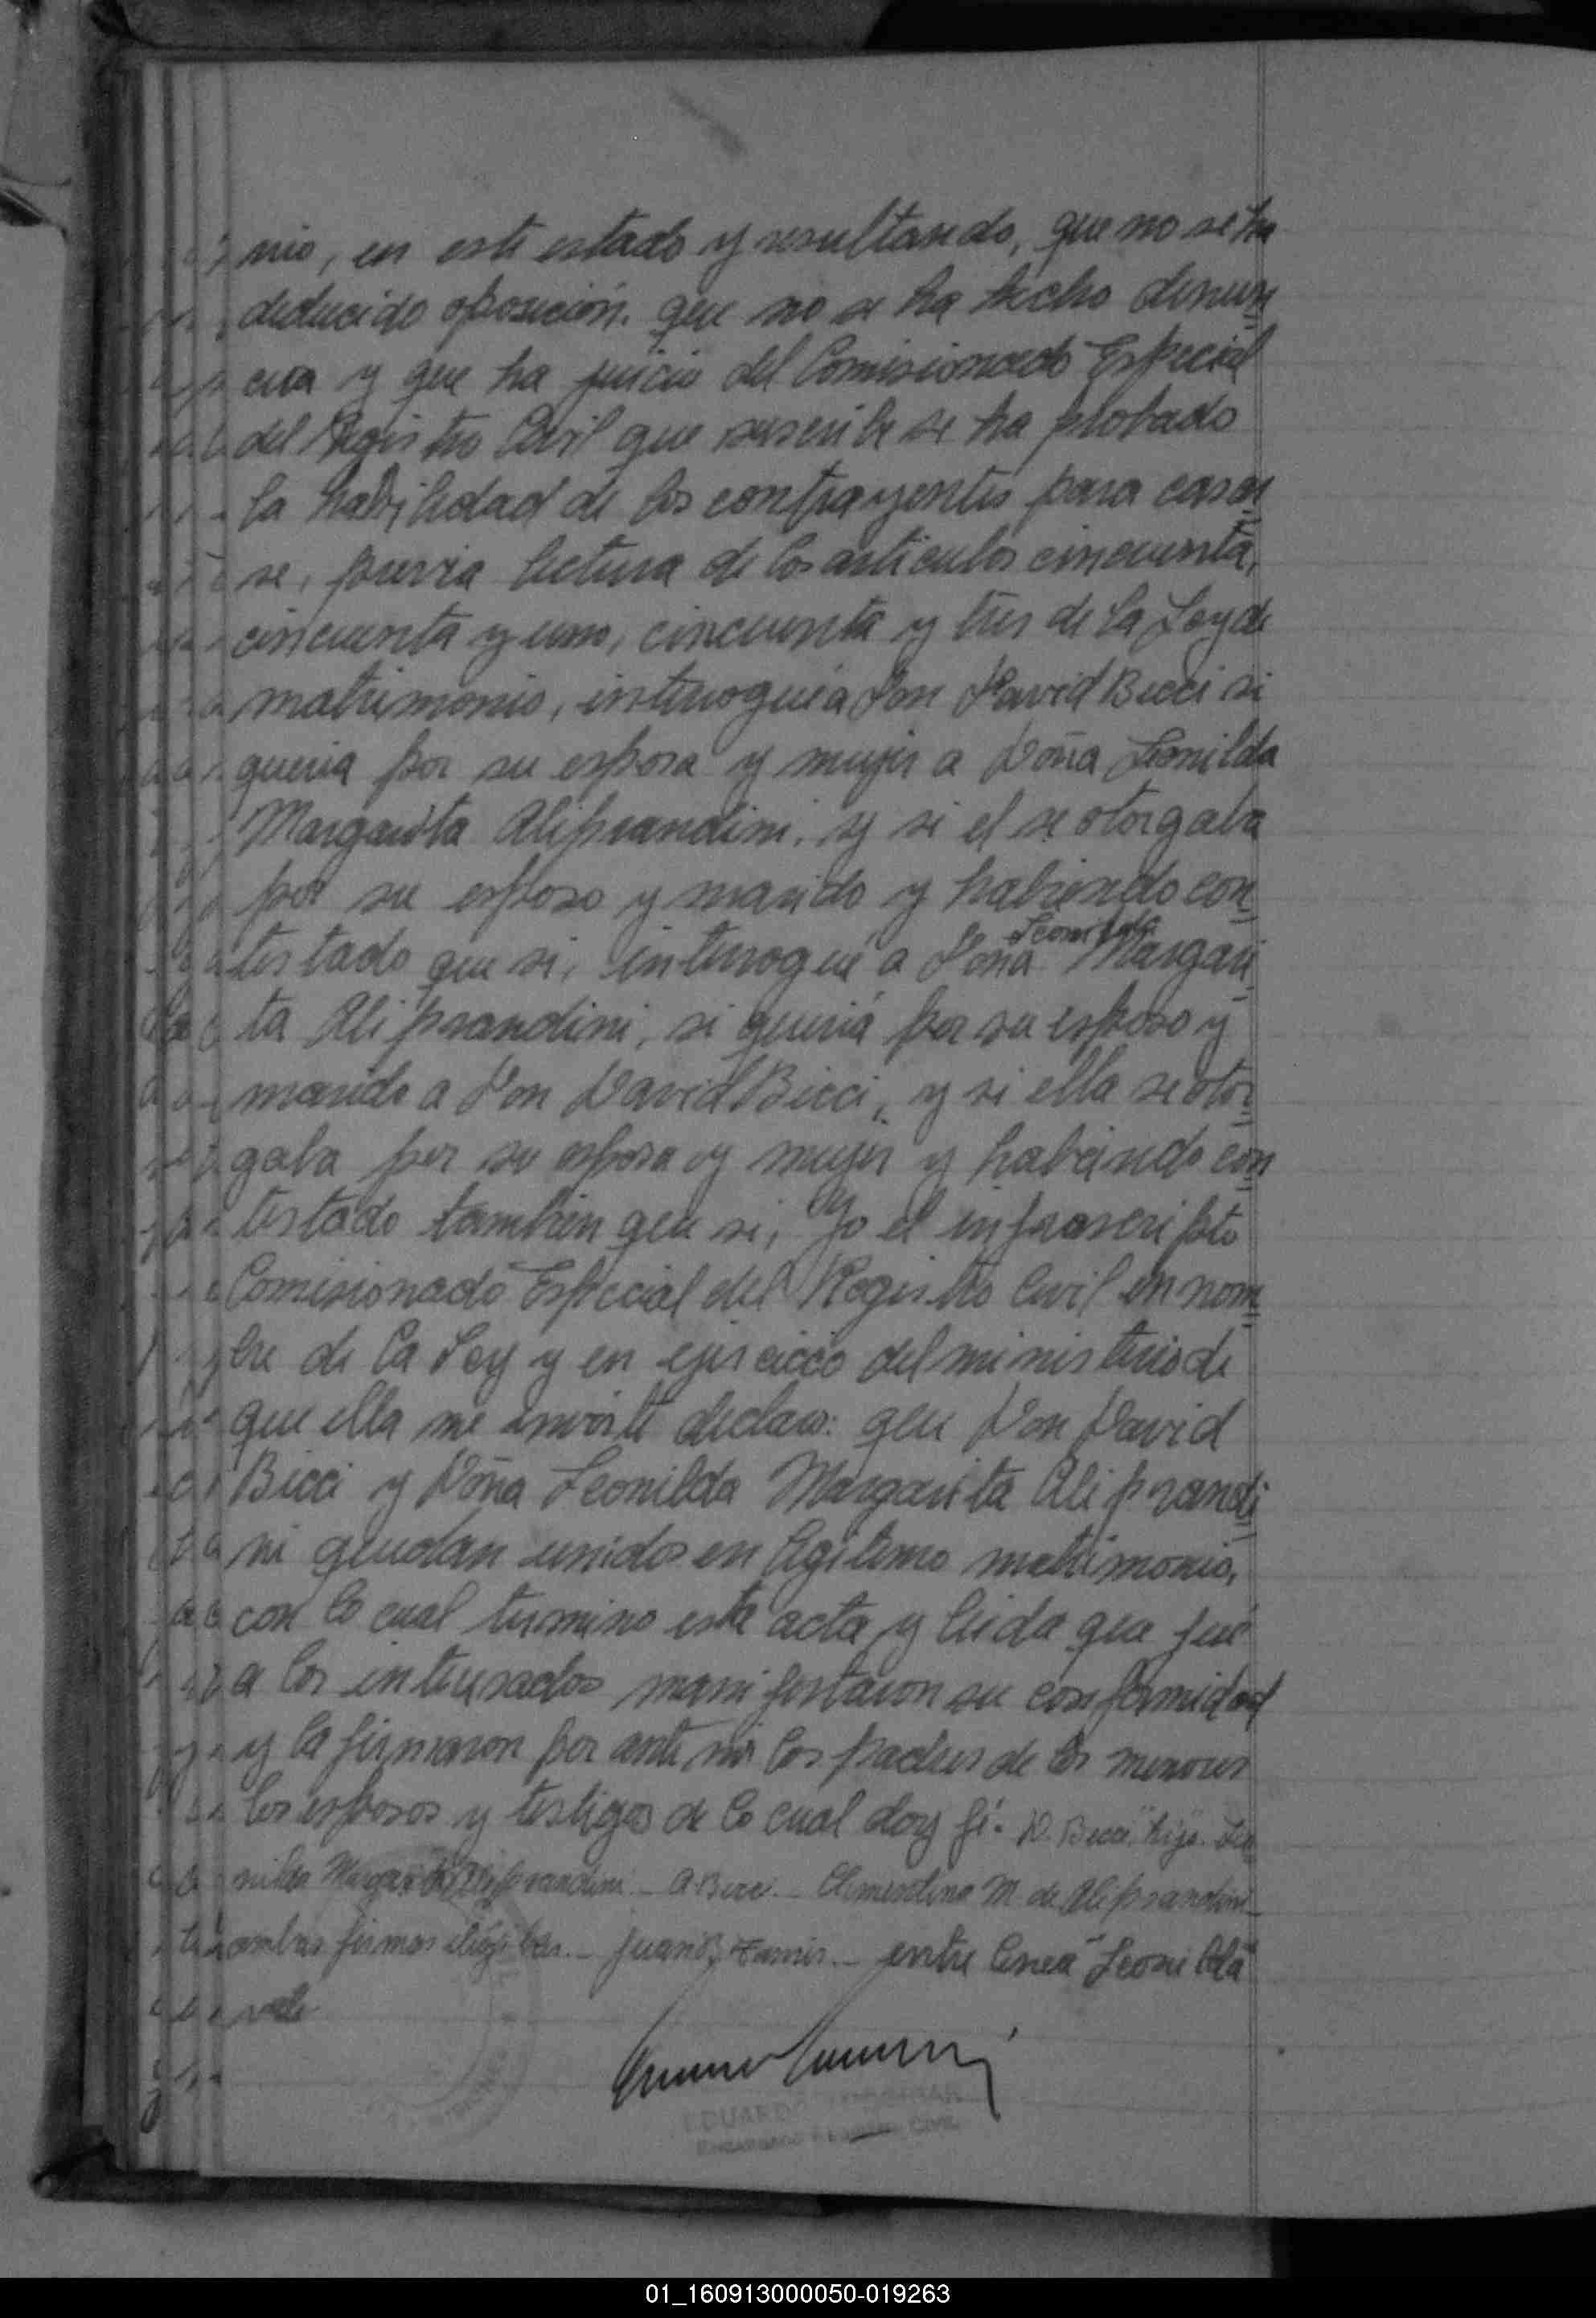 nio, en este estado y resultando, que no se ha
deducido oposición. que no se ha hecho denun
cia y que ha juicio del Comisionado Especial
del Registro Civil que suscribe se ha probado
la habilidad de los contrayentes para casar
se, previa lectura de los articulos cincuenta,
cincuenta y uno, cincuenta y tres de la Ley de
matrimonio, interrogué a Don David Bicci si
queria por su esposa y mujer a Doña Leonilda
Margarita Aliprandini, y si el se otorgaba
por su esposo y marido y habiendo con
Leonilda
testado que si, interrogué a Doña Margari
ta Aliprandini, si queria por su esposo y
marido a Don David Bicci, y si ella se otor
gaba por su esposa y mujer y habiendo con
testado tambien que si, Yo el infrascripto
Comisionado Especial del Registro Civil en nom
bre de la Ley y en ejercicio del ministerio de
que ella me inviste declaro: que Don David
Bicci y Doña Leonilda Margarita Aliprandi
ni quedan unidos en legitimo matrimonio,
con lo cual termino este acta y leida que fué
a los interesados manifestaron su conformidad
y la firmaron por ante mi los padres de los menores
los esposos y testigos de lo cual doy fé. D. Bicci "hijo". Leo
nilda Margarita Aliprandini. _ A. Bicci. _ Clementina M. de Aliprandini _
ambas firmas ilegibles. _ Juan B. _ entre linea "Leonilda"
vale.
EDUARDO
ENCARGADO REGISTRO CIVIL
01_160913000050-019263